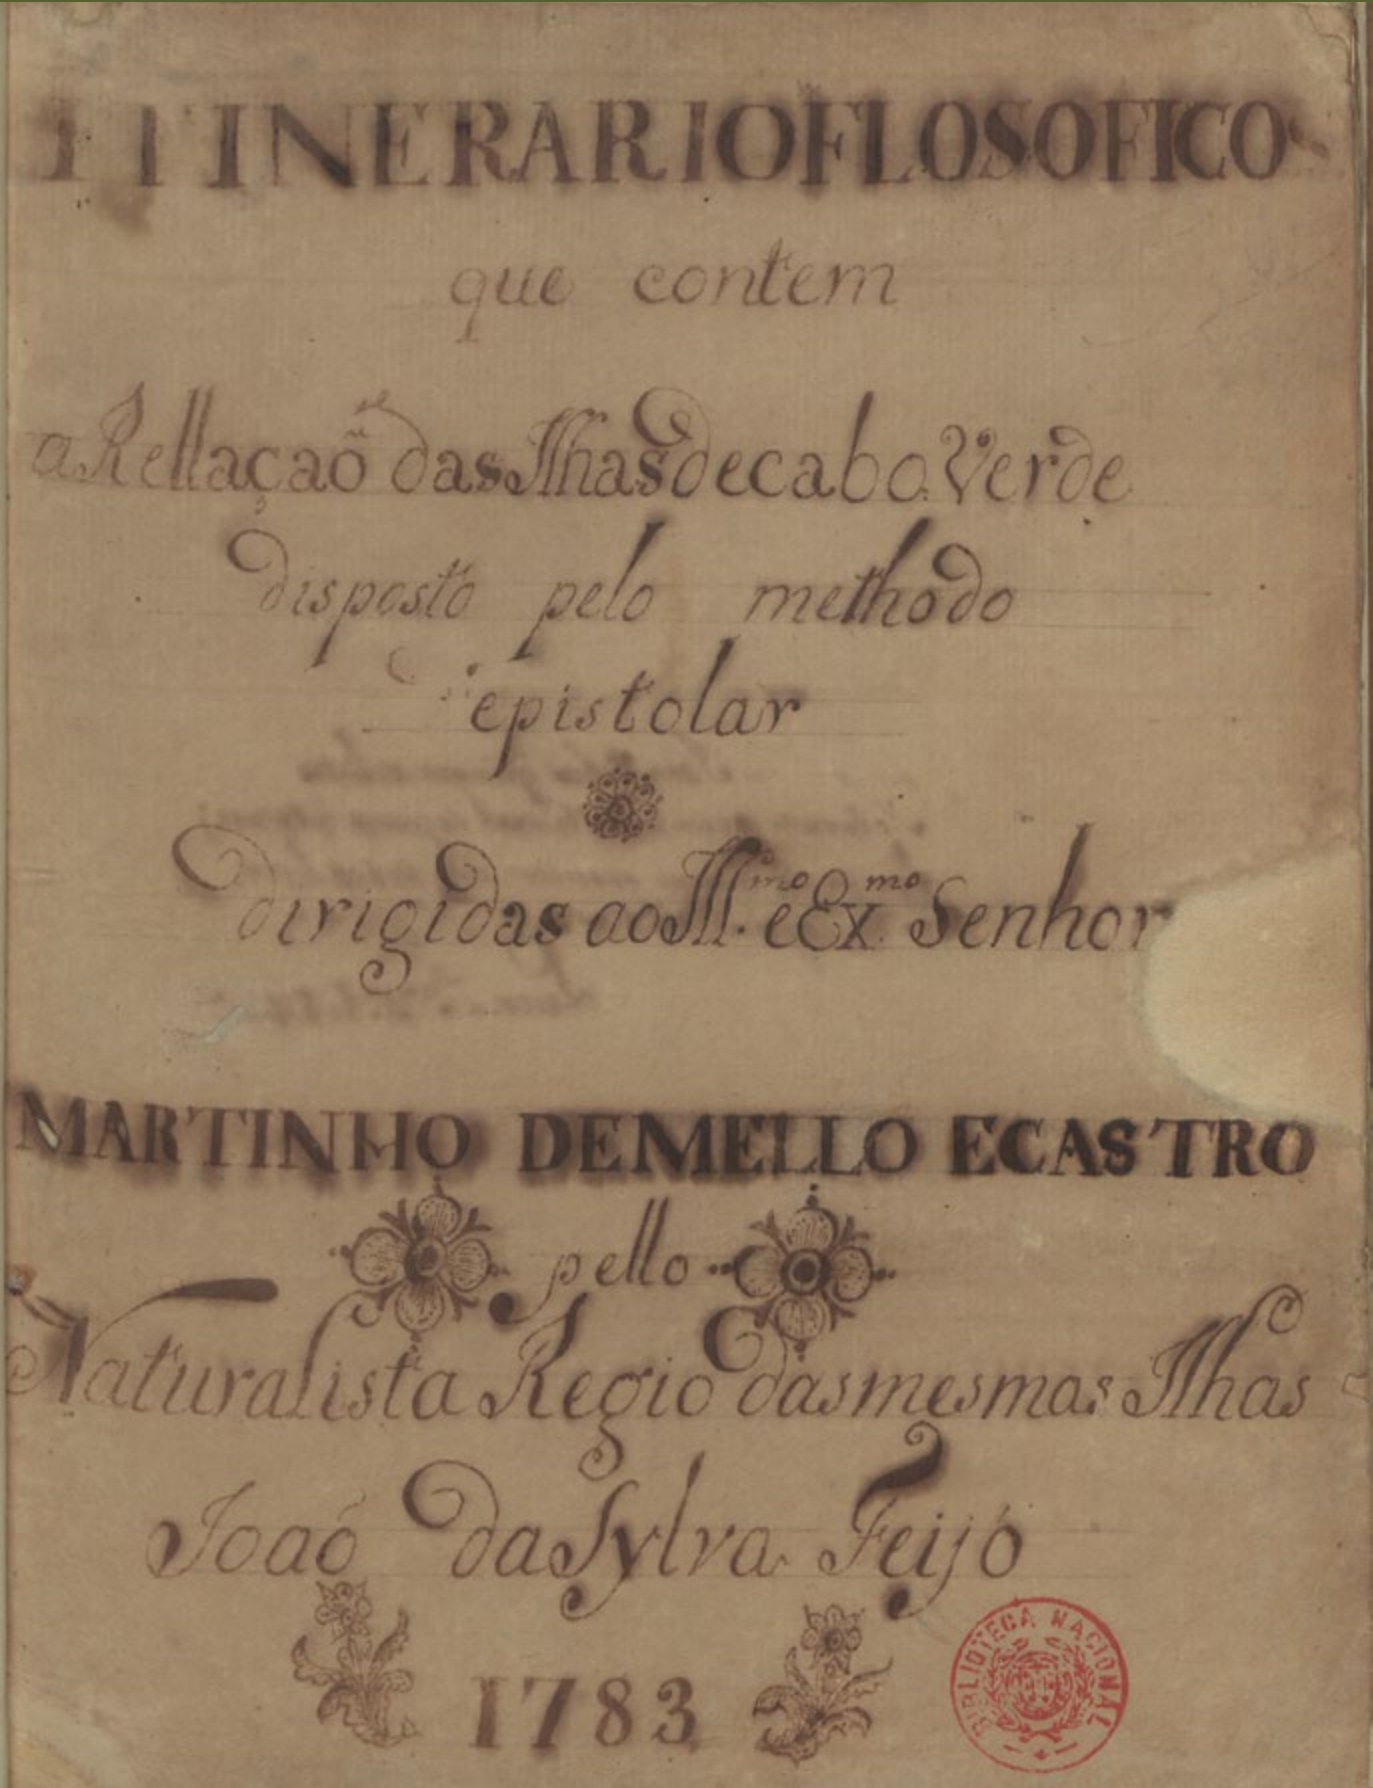 ITINERARIO FLOSOFICO
que contem
a Rellaçaõ das Ilhas de cabo Verde
disposto pelo methodo
epistolar
dirigidas ao Ill.mo e Ex.mo Senhor
MARTINHO DE MELLO E CASTRO
pello
Naturalista Regio das mesmas Ilhas
Joaó da Sylva Feijó
1783
BIBLIOTECA NACIONAL